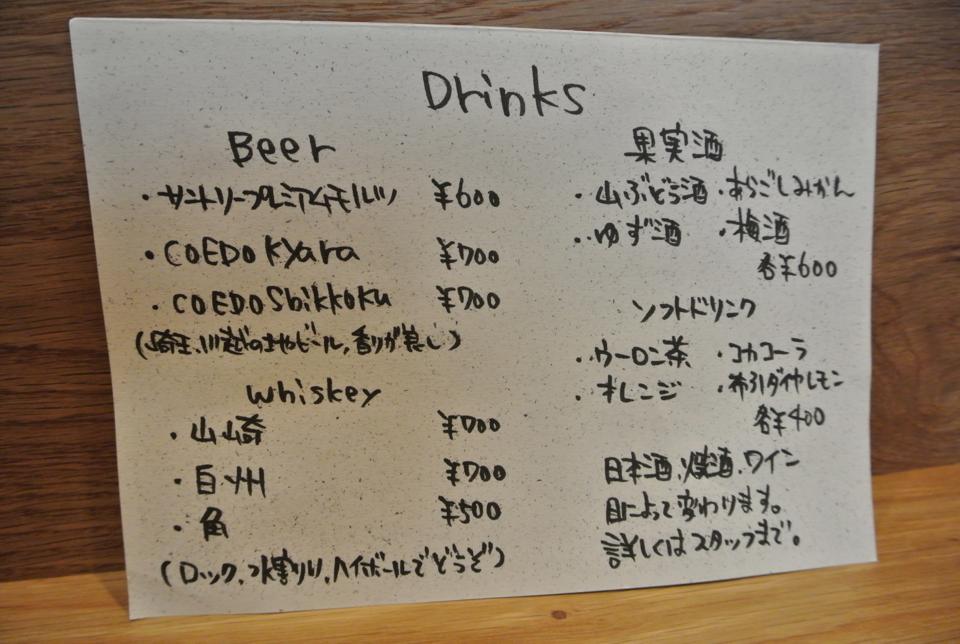 Drinks
Beer
・サントリープレミアムモルツ ¥600
・COEDO Kyara ¥700
・COEDO Shikkoku ¥700
(埼玉、川越の地ビール,香りが良し)
whiskey
・山崎 ¥700
・白州 ¥700
・角 ¥500
(ロック,水割り,ハイボールでどうぞ)
果実酒
・山ぶどう酒 ・あらごしみかん
・ゆず酒 ・梅酒
各¥600
ソフトドリンク
・ウーロン茶 ・コカコーラ
・オレンジ ・布引ダイヤレモン
各¥400
日本酒,焼酒,ワイン
日によって変わります。
詳しくはスタッフまで。